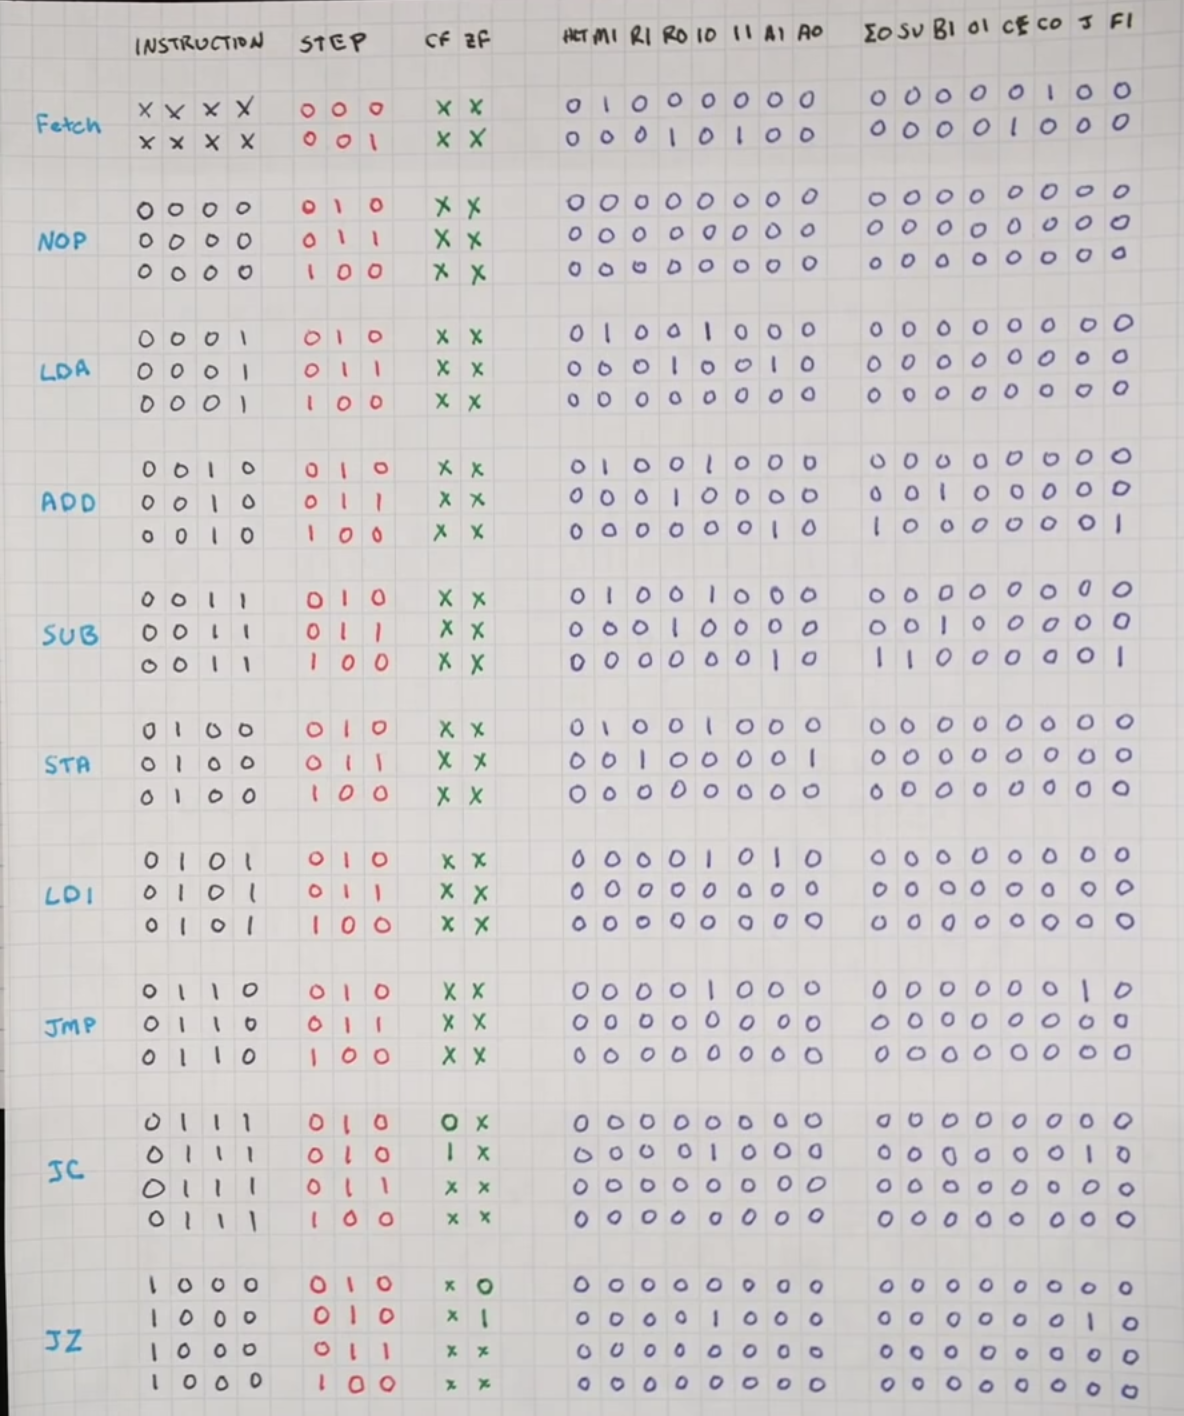 INSTRUCTION STEP CF ZF HLT MI RI RO IO II AI AO ΣO SU BI OI CE CO J FI
Fetch
X X X X 0 0 0 X X 0 1 0 0 0 0 0 0 0 0 0 0 0 1 0 0
X X X X 0 0 1 X X 0 0 0 1 0 1 0 0 0 0 0 0 1 0 0 0
NOP
0 0 0 0 0 1 0 X X 0 0 0 0 0 0 0 0 0 0 0 0 0 0 0 0
0 0 0 0 0 1 1 X X 0 0 0 0 0 0 0 0 0 0 0 0 0 0 0 0
0 0 0 0 1 0 0 X X 0 0 0 0 0 0 0 0 0 0 0 0 0 0 0 0
LDA
0 0 0 1 0 1 0 X X 0 1 0 0 1 0 0 0 0 0 0 0 0 0 0 0
0 0 0 1 0 1 1 X X 0 0 0 1 0 0 1 0 0 0 0 0 0 0 0 0
0 0 0 1 1 0 0 X X 0 0 0 0 0 0 0 0 0 0 0 0 0 0 0 0
ADD
0 0 1 0 0 1 0 X X 0 1 0 0 1 0 0 0 0 0 0 0 0 0 0 0
0 0 1 0 0 1 1 X X 0 0 0 1 0 0 0 0 0 0 1 0 0 0 0 0
0 0 1 0 1 0 0 X X 0 0 0 0 0 0 1 0 1 0 0 0 0 0 0 1
SUB
0 0 1 1 0 1 0 X X 0 1 0 0 1 0 0 0 0 0 0 0 0 0 0 0
0 0 1 1 0 1 1 X X 0 0 0 1 0 0 0 0 0 0 1 0 0 0 0 0
0 0 1 1 1 0 0 X X 0 0 0 0 0 0 1 0 1 1 0 0 0 0 0 1
STA
0 1 0 0 0 1 0 X X 0 1 0 0 1 0 0 0 0 0 0 0 0 0 0 0
0 1 0 0 0 1 1 X X 0 0 1 0 0 0 0 1 0 0 0 0 0 0 0 0
0 1 0 0 1 0 0 X X 0 0 0 0 0 0 0 0 0 0 0 0 0 0 0 0
LDI
0 1 0 1 0 1 0 X X 0 0 0 0 1 0 1 0 0 0 0 0 0 0 0 0
0 1 0 1 0 1 1 X X 0 0 0 0 0 0 0 0 0 0 0 0 0 0 0 0
0 1 0 1 1 0 0 X X 0 0 0 0 0 0 0 0 0 0 0 0 0 0 0 0
JMP
0 1 1 0 0 1 0 X X 0 0 0 0 1 0 0 0 0 0 0 0 0 0 1 0
0 1 1 0 0 1 1 X X 0 0 0 0 0 0 0 0 0 0 0 0 0 0 0 0
0 1 1 0 1 0 0 X X 0 0 0 0 0 0 0 0 0 0 0 0 0 0 0 0
JC
0 1 1 1 0 1 0 0 X 0 0 0 0 0 0 0 0 0 0 0 0 0 0 0 0
0 1 1 1 0 1 0 1 X 0 0 0 0 1 0 0 0 0 0 0 0 0 0 1 0
0 1 1 1 0 1 1 X X 0 0 0 0 0 0 0 0 0 0 0 0 0 0 0 0
0 1 1 1 1 0 0 X X 0 0 0 0 0 0 0 0 0 0 0 0 0 0 0 0
JZ
1 0 0 0 0 1 0 X 0 0 0 0 0 0 0 0 0 0 0 0 0 0 0 0 0
1 0 0 0 0 1 0 X 1 0 0 0 0 1 0 0 0 0 0 0 0 0 0 1 0
1 0 0 0 0 1 1 X X 0 0 0 0 0 0 0 0 0 0 0 0 0 0 0 0
1 0 0 0 1 0 0 X X 0 0 0 0 0 0 0 0 0 0 0 0 0 0 0 0